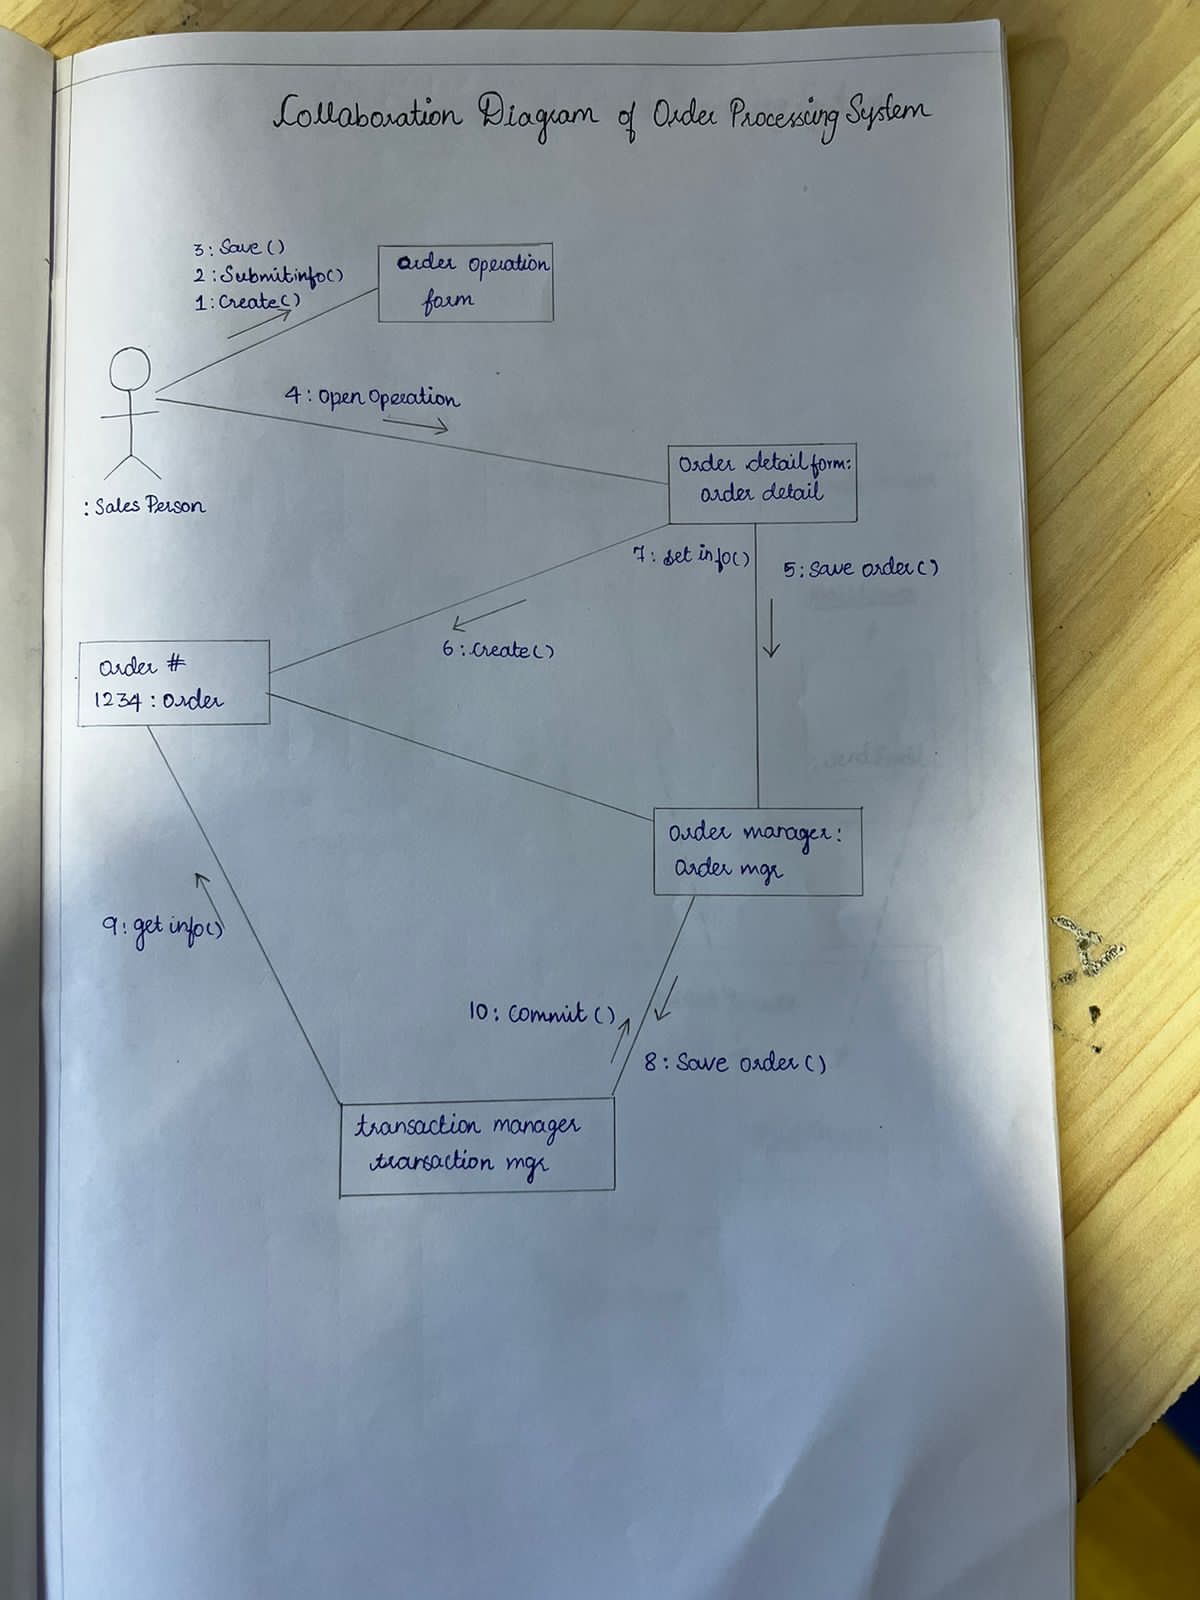 Collaboration Diagram of Order Processing System
3: Save ()
2: Submitinfo()
1: Create()
order operation
form
4: Open Operation
: Sales Person
Order detail form:
order detail
7: set info()
5: Save order ()
6: Create()
order #
1234 : Order
order manager:
Order mgr
9: get info()
10: Commit ()
8: Save order ()
transaction manager
transaction mgr